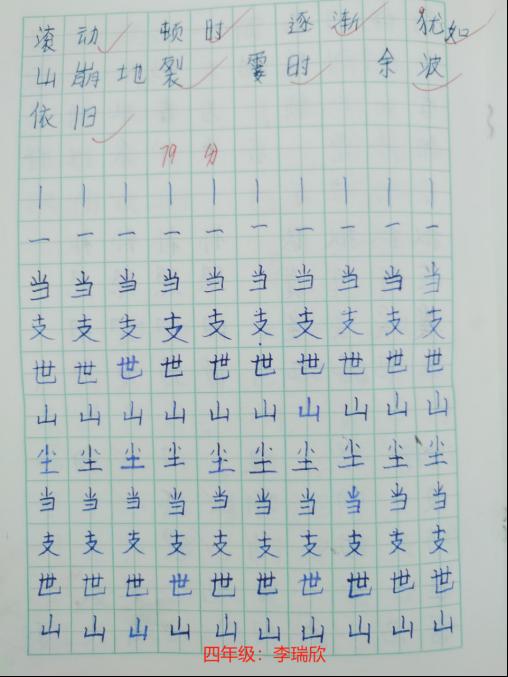 滚动 顿时 逐渐 犹如
山崩地裂 霎时 余波
依旧
79分
丨丨丨丨丨丨丨丨丨丨
一一一一一一一一一一
当当当当当当当当当当
支支支支支支支支支支
世世世世世世世世世世
山山山山山山山山山山
尘尘尘尘尘尘尘尘尘尘
当当当当当当当当当当
支支支支支支支支支支
世世世世世世世世世世
山山山山山山山山山山
四年级：李瑞欣